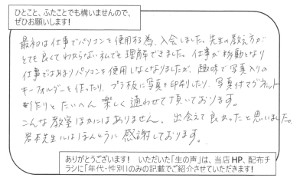 ひとこと、ふたことでも構いませんので、
ぜひお願いします!
最初は仕事でパソコンを使用する為、入会しました。先生の教え方が
とても良くてわからない私でも理解できました。仕事が移動となり
仕事ではあまりパソコンを使用しなくなりましたが、趣味で写真入りの
キーホルダーを作ったり、プラ板に写真を印刷したり、写真付マグネット
を作りとたいへん楽しく通わせて頂いております。
こんな教室はほかにはありません。出会えて良かったと思いました。
岩本先生にはほんとうに感謝しております。
ありがとうございます! いただいた「生の声」は、当店HP、配布チ
ラシに「年代・性別」のみの記載でご紹介させていただきます!